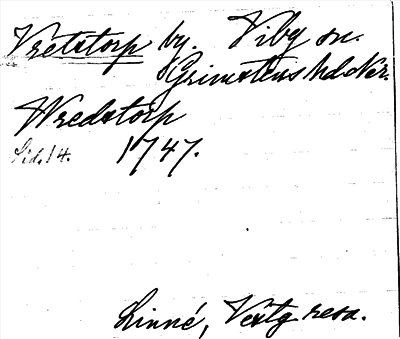 Vretstorp by. Viby sn.
Grimstens hd Ner.
Wredstorp
Sid. 14. 1747.
Linné, Västg resa.